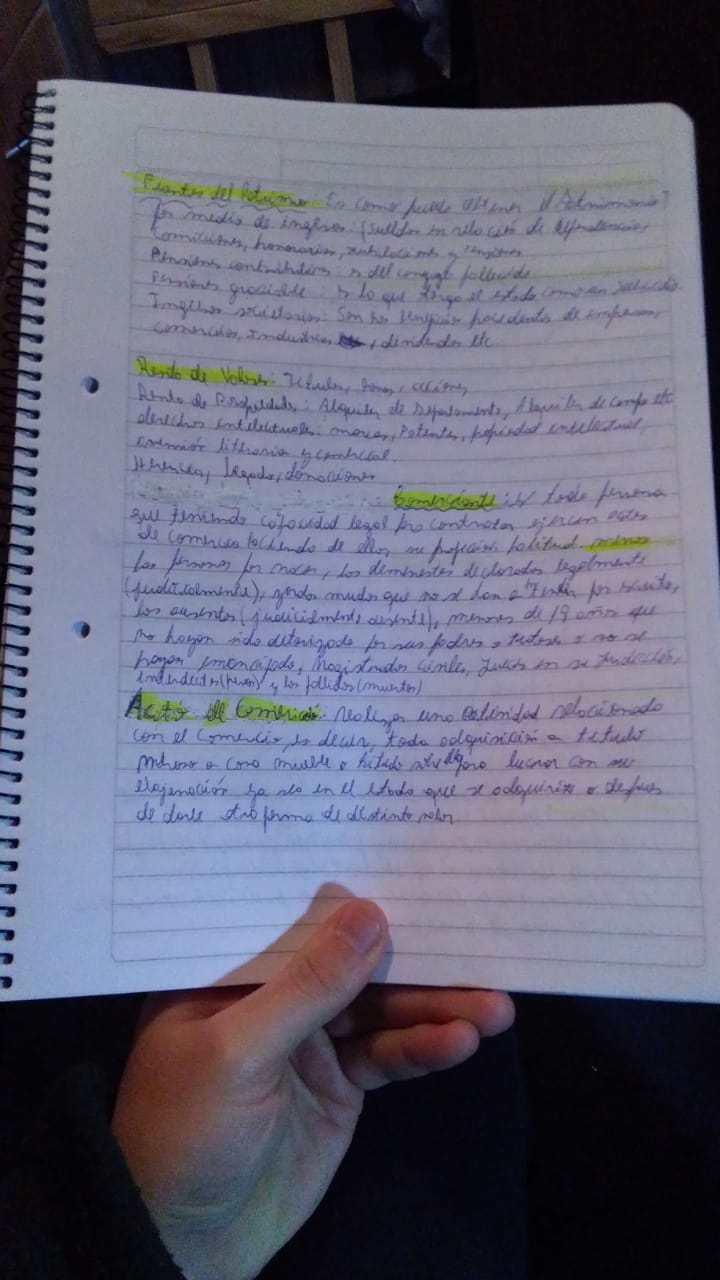 Fuentes del Patrimo: Es como puede obtener el Patrimonio?
Por medio de ingresos. (sueldos en relación de dependencia,
Comiciones, honorarios, jubilaciones y Pensiones
Pensiones contributivas: es del conyuge fallecido
Pensiones graciable: es lo que otorga el estado como en
Ingresos societarios: Son los beneficios procedentes de empresas,
comercios, Industrias, dividendos etc
Renta de Valores: Titulos, bonos, acciones
Renta de Propiedades: Alquiler de Departamento, Alquiler de campo etc
derechos intelectuales: marcas, Patentes, propiedad intelectual,
literaria y comercial.
Herencia, legado, donaciones
Comerciante: es toda persona
que teniendo capacidad legal para contratar ejercen actos
de comercio haciendo de ellos, su profesión habitual menos
las personas por nacer, los dementes declarados legalmente
(judicialmente), sordos mudos que no se dan a entender por escrito,
los ausentes (judicialmente ausente), menores de 19 años que
no hayan sido autorizado por sus padres o tutores o no se
hayan emancipado, Magistrados civiles, Jueces en su
y los fallidos (muertos)
Acto de Comercio: realizar una actividad relacionada
con el Comercio, es decir, toda adquisición a titulo
a cosa mueble o para lucrar con su
enajenación ya sea en el estado que se adquirió o despues
de darle otra forma de distinto valor